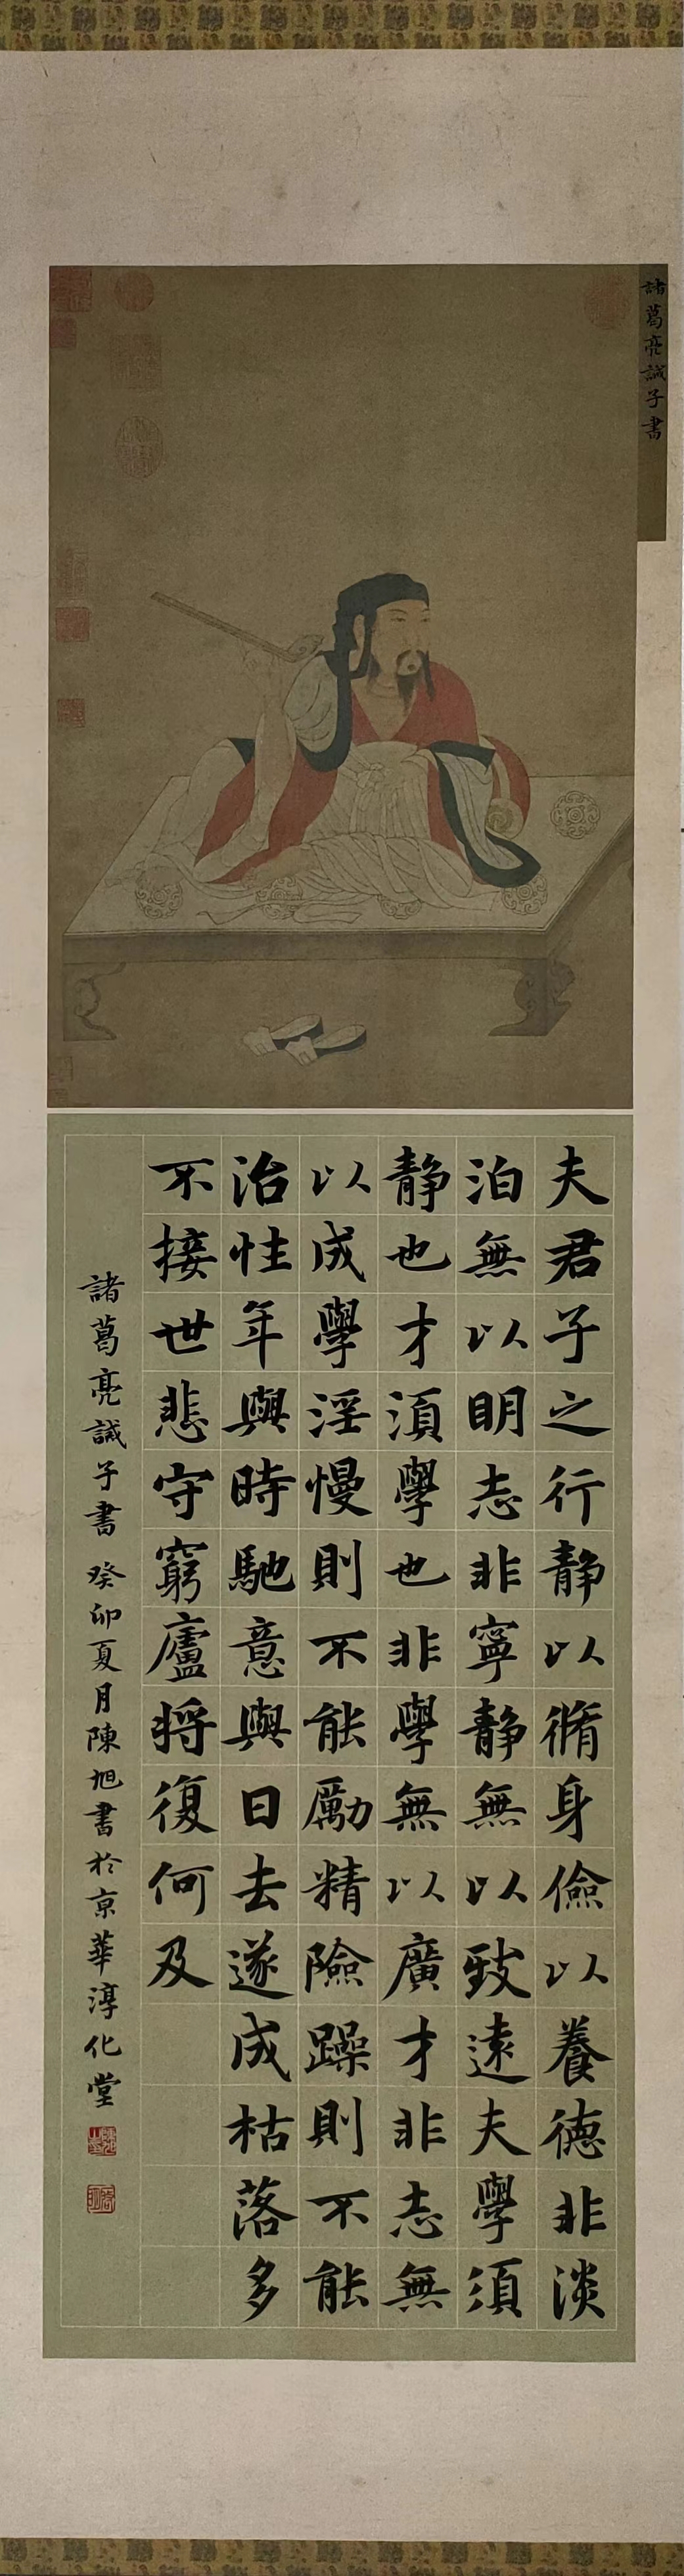 諸葛亮誡子書
夫君子之行靜以脩身儉以養德非淡
泊無以明志非寧靜無以致遠夫學須
靜也才須學也非學無以廣才非志無
以成學淫慢則不能勵精險躁則不能
治性年與時馳意與日去遂成枯落多
不接世悲守窮廬將復何及
諸葛亮誡子書 癸卯夏月陳旭書於京華淳化堂